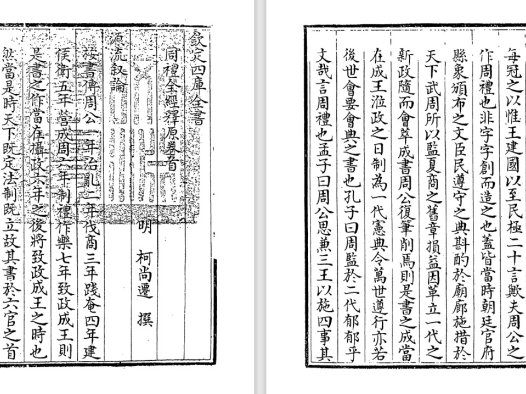 欽定四庫全書
周禮全經釋原卷首
明 柯尚遷 撰
源流叙論
按書傳周公一年治亂二年伐商三年踐奄四年建
侯衛五年營成周六年制禮作樂七年致政成王則
是書之作當在攝政六年之後將致政成王之時也
然當是時天下既定法制既立故其書於六官之首
每冠之以惟王建國以至民極二十言歟夫周公之
作周禮也非字字創而造之也蓋皆當時朝廷官府
縣衆頒布之文臣民遵守之典斟酌於廟廊施措於
天下武周所以監夏商之舊章損益因革立一代之
新政隨而會萃成書周公復筆削焉則是書之成當
在成王涖政之日制為一代憲典令萬世遵行亦若
後世會要會典之書也孔子曰周監於二代郁郁乎
文哉言周禮也孟子曰周公思兼三王以施四事其